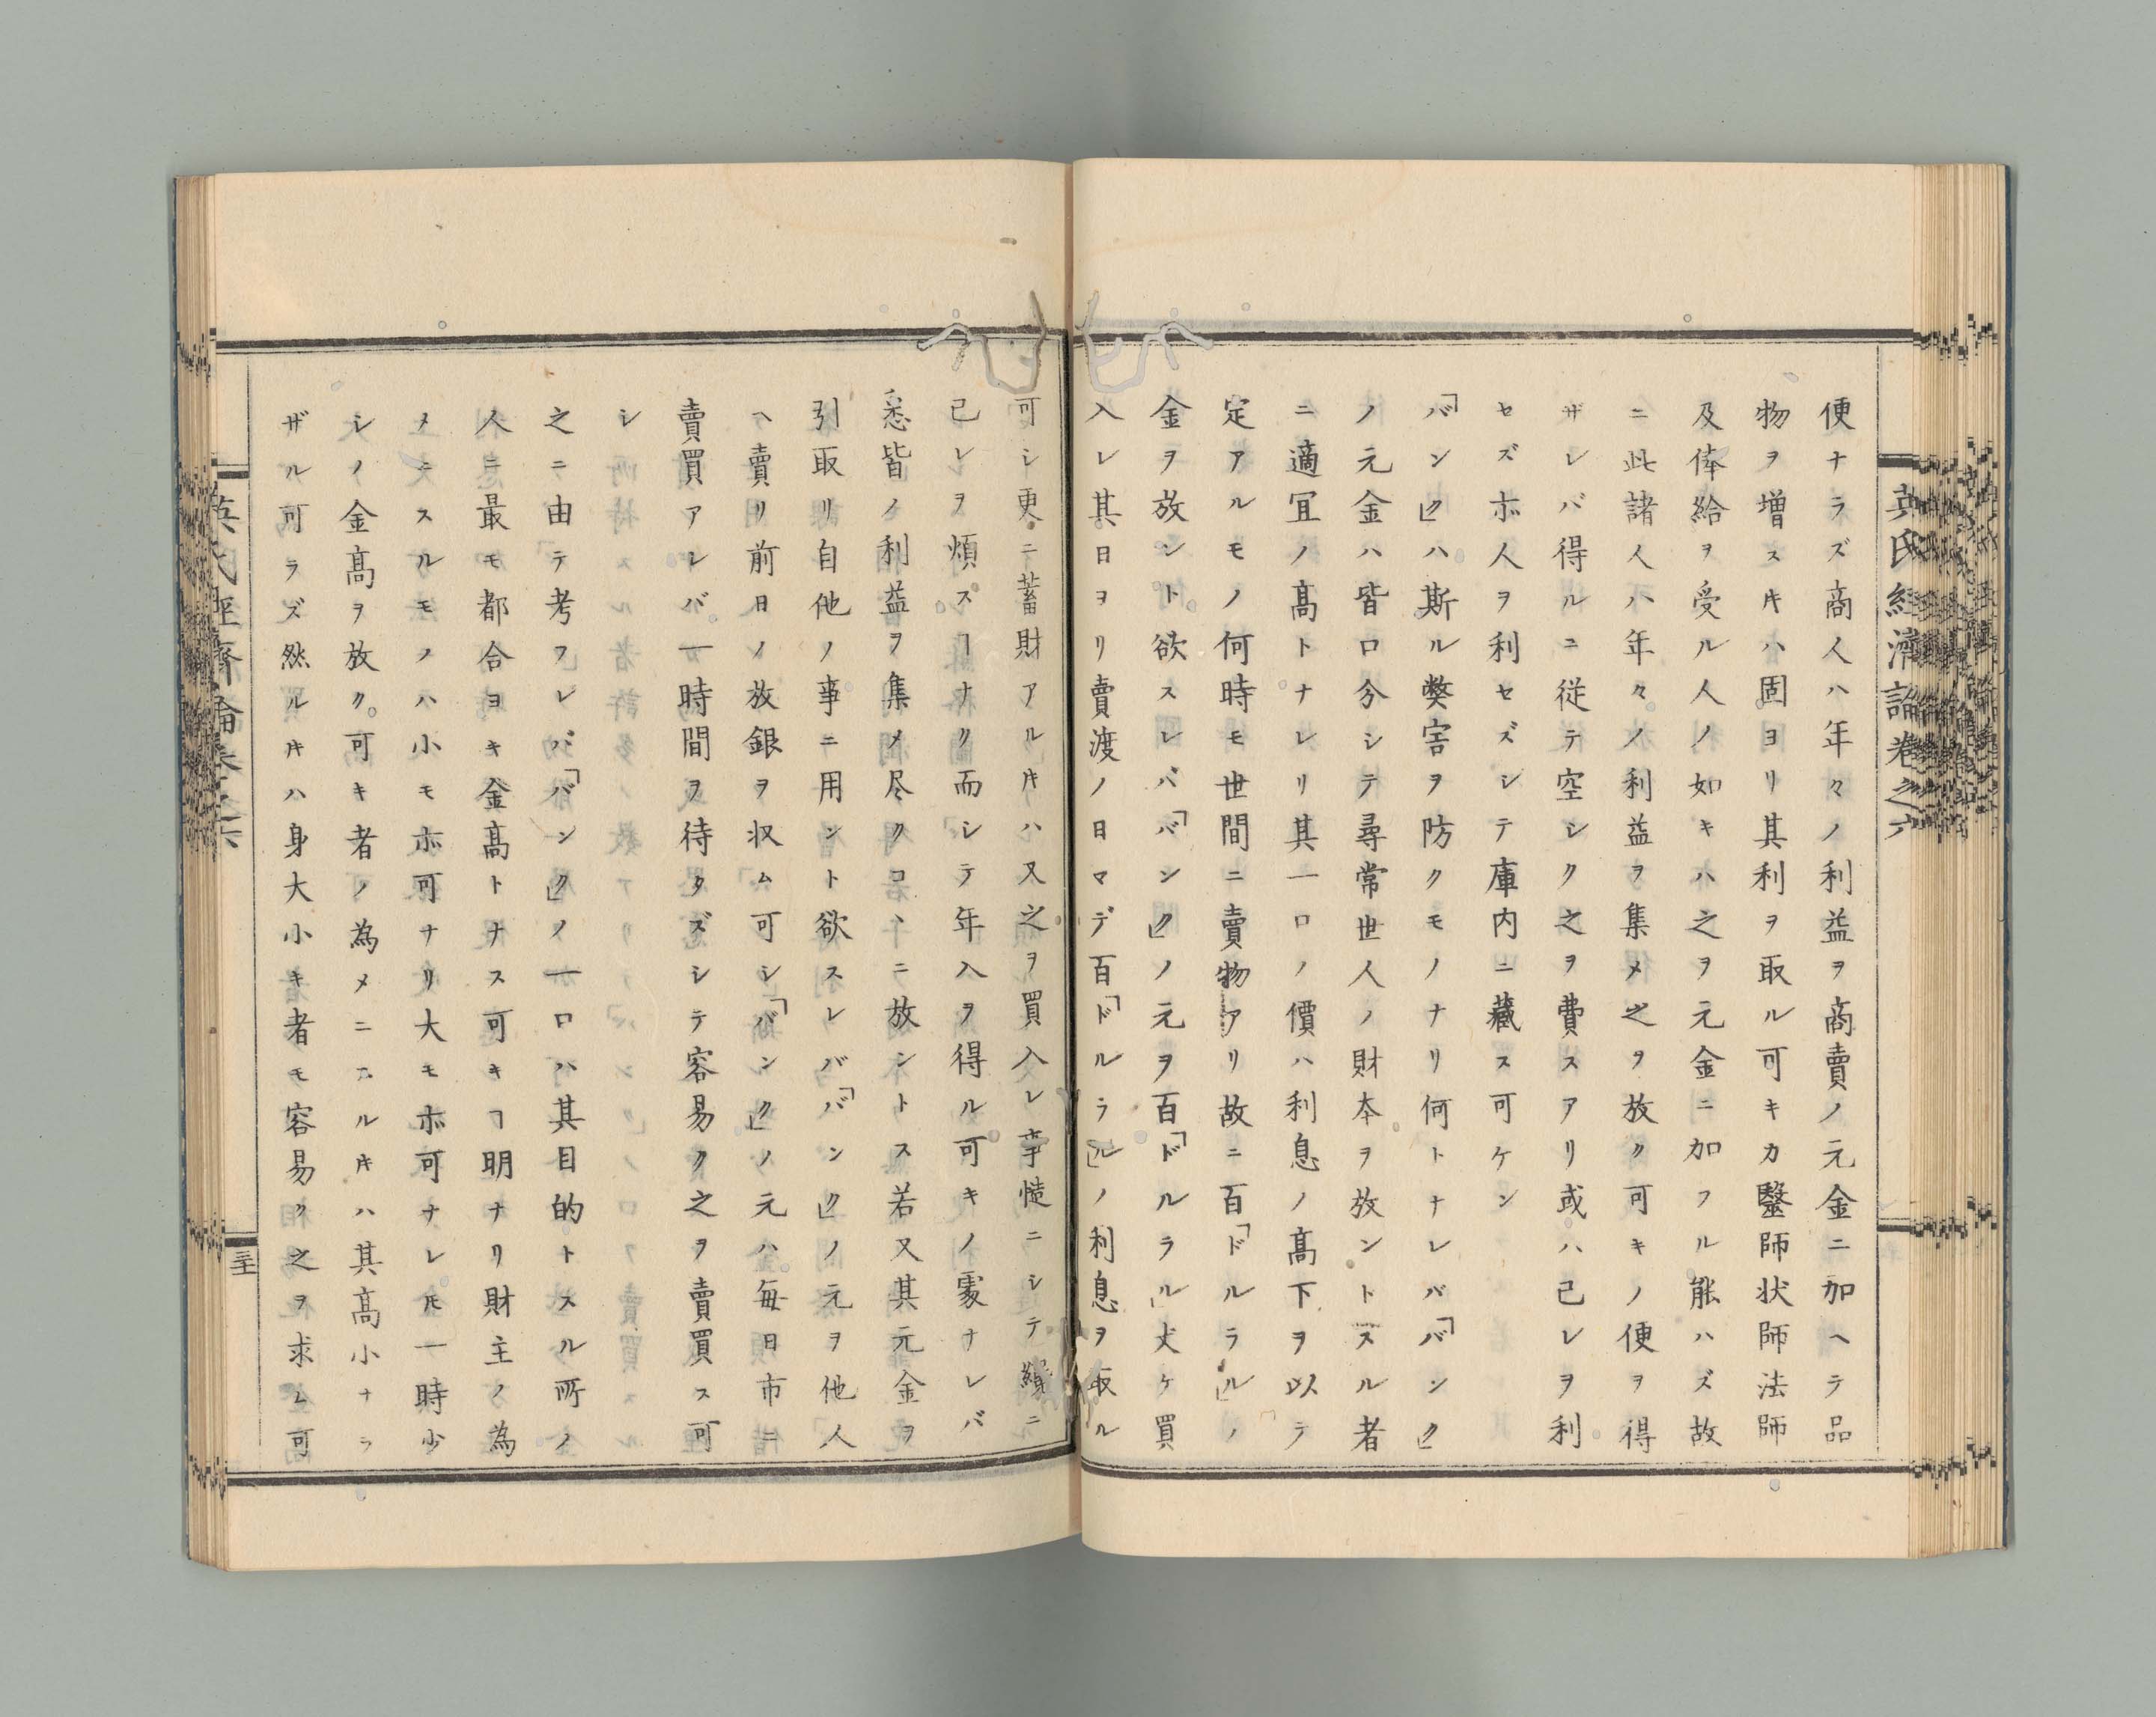 便ナラズ商人ハ年々ノ利益ヲ商賣ノ元金ニ加ヘテ品
物ヲ増スキハ固ヨリ其利ヲ取ル可キカ醫師状師法師
及俸給ヲ受ル人ノ如キハ之ヲ元金ニ加フル能ハズ故
ニ此諸人ハ年々ノ利益ヲ集メ之ヲ放ク可キノ便ヲ得
ザレバ得ルニ従テ空シク之ヲ費スアリ或ハ己レヲ利
セズ亦人ヲ利セズシテ庫内ニ藏ス可ケン
「バンク」ハ斯ル弊害ヲ防クモノナリ何トナレバ「バンク」
ノ元金ハ皆口分シテ尋常世人ノ財本ヲ放ントスル者
ニ適宜ノ髙トナレリ其一口ノ價ハ利息ノ髙下ヲ以テ
定アルモノ何時モ世間ニ賣物アリ故ニ百「ドルラル」ノ
金ヲ放ント欲スレバ「バンク」ノ元ヲ百「ドルラル」丈ケ買
入レ其日ヨリ賣渡ノ日マデ百「ドルラル」ノ利息ヲ取ル
可シ更ニ蓄財アルキハ又之ヲ買入レ事慥ニシテ纔ニ
己レヲ煩スヿナク而シテ年入ヲ得ル可キノ處ナレバ
悉皆ノ利益ヲ集メ尽クコヽニ放ントス若又其元金ヲ
引取リ自他ノ事ニ用ント欲スレバ「バンク」ノ元ヲ他人
ヘ賣リ前日ノ放銀ヲ収ム可シ「バンク」ノ元ハ毎日市ニ
賣買アレバ一時間ヲ待タズシテ容易ク之ヲ賣買ス可
シ
之ニ由テ考フレバ「バンク」ノ一口ハ其目的トスル所ノ
人ニ最モ都合ヨキ金髙トナス可キヿ明ナリ財主ノ為
メニスルモノハ小モ亦可ナリ大モ亦可ナレ𪜈一時少
シノ金髙ヲ放ク可キ者ノ為メニスルキハ其髙小ナラ
ザル可ラズ然ルキハ身大小キ者モ容易ク之ヲ求ム可
英氏經濟論卷之六
英氏經濟論卷之六
三十